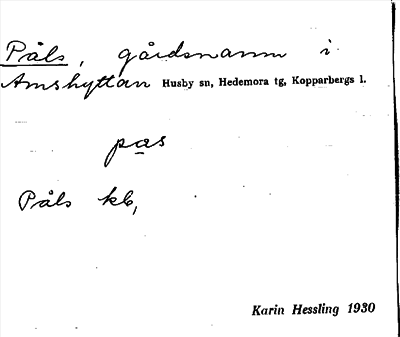 Påls, gårdsnamn i
Amshyttan Husby sn, Hedemora tg, Kopparbergs l.
pas
Påls kb,
Karin Hessling 1930